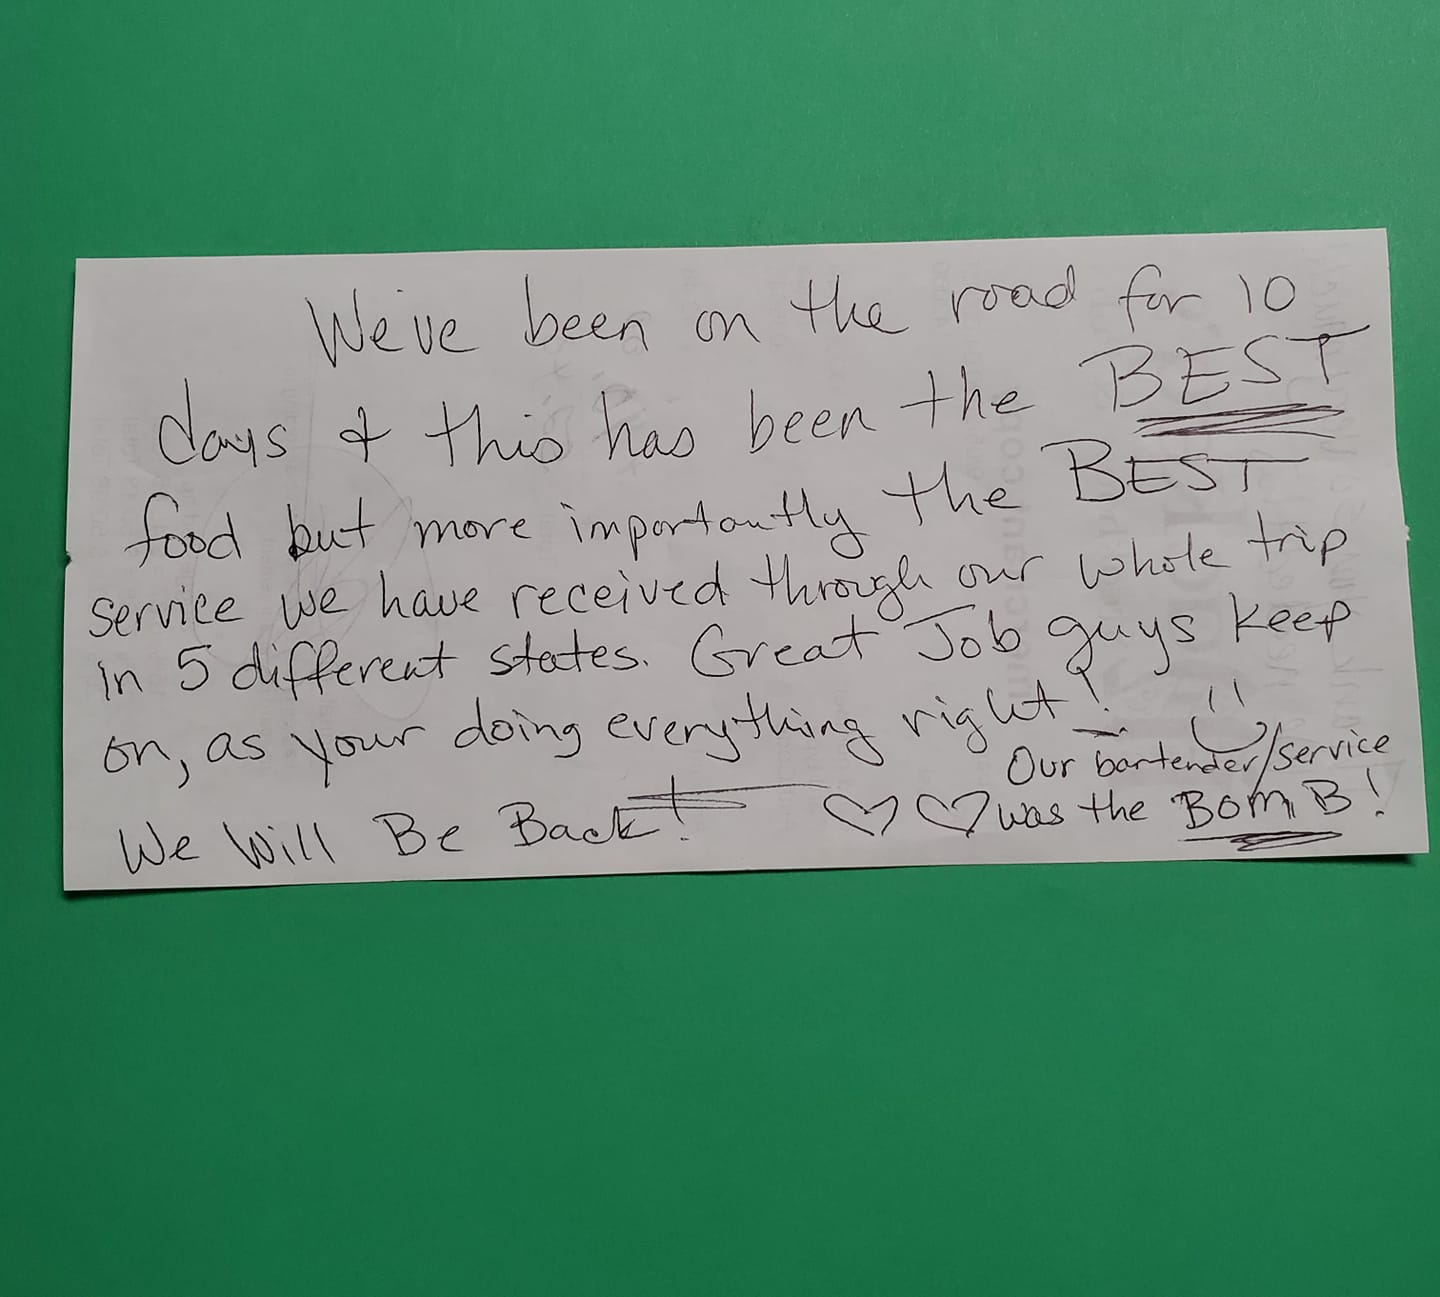 We've been on the road for 10
days & this has been the BEST
food but more importantly the BEST
service we have received through our whole trip
in 5 different states. Great Job guys keep
on, as your doing everything right!
Our bartender/service
We Will Be Back! ♡♡ was the BomB!